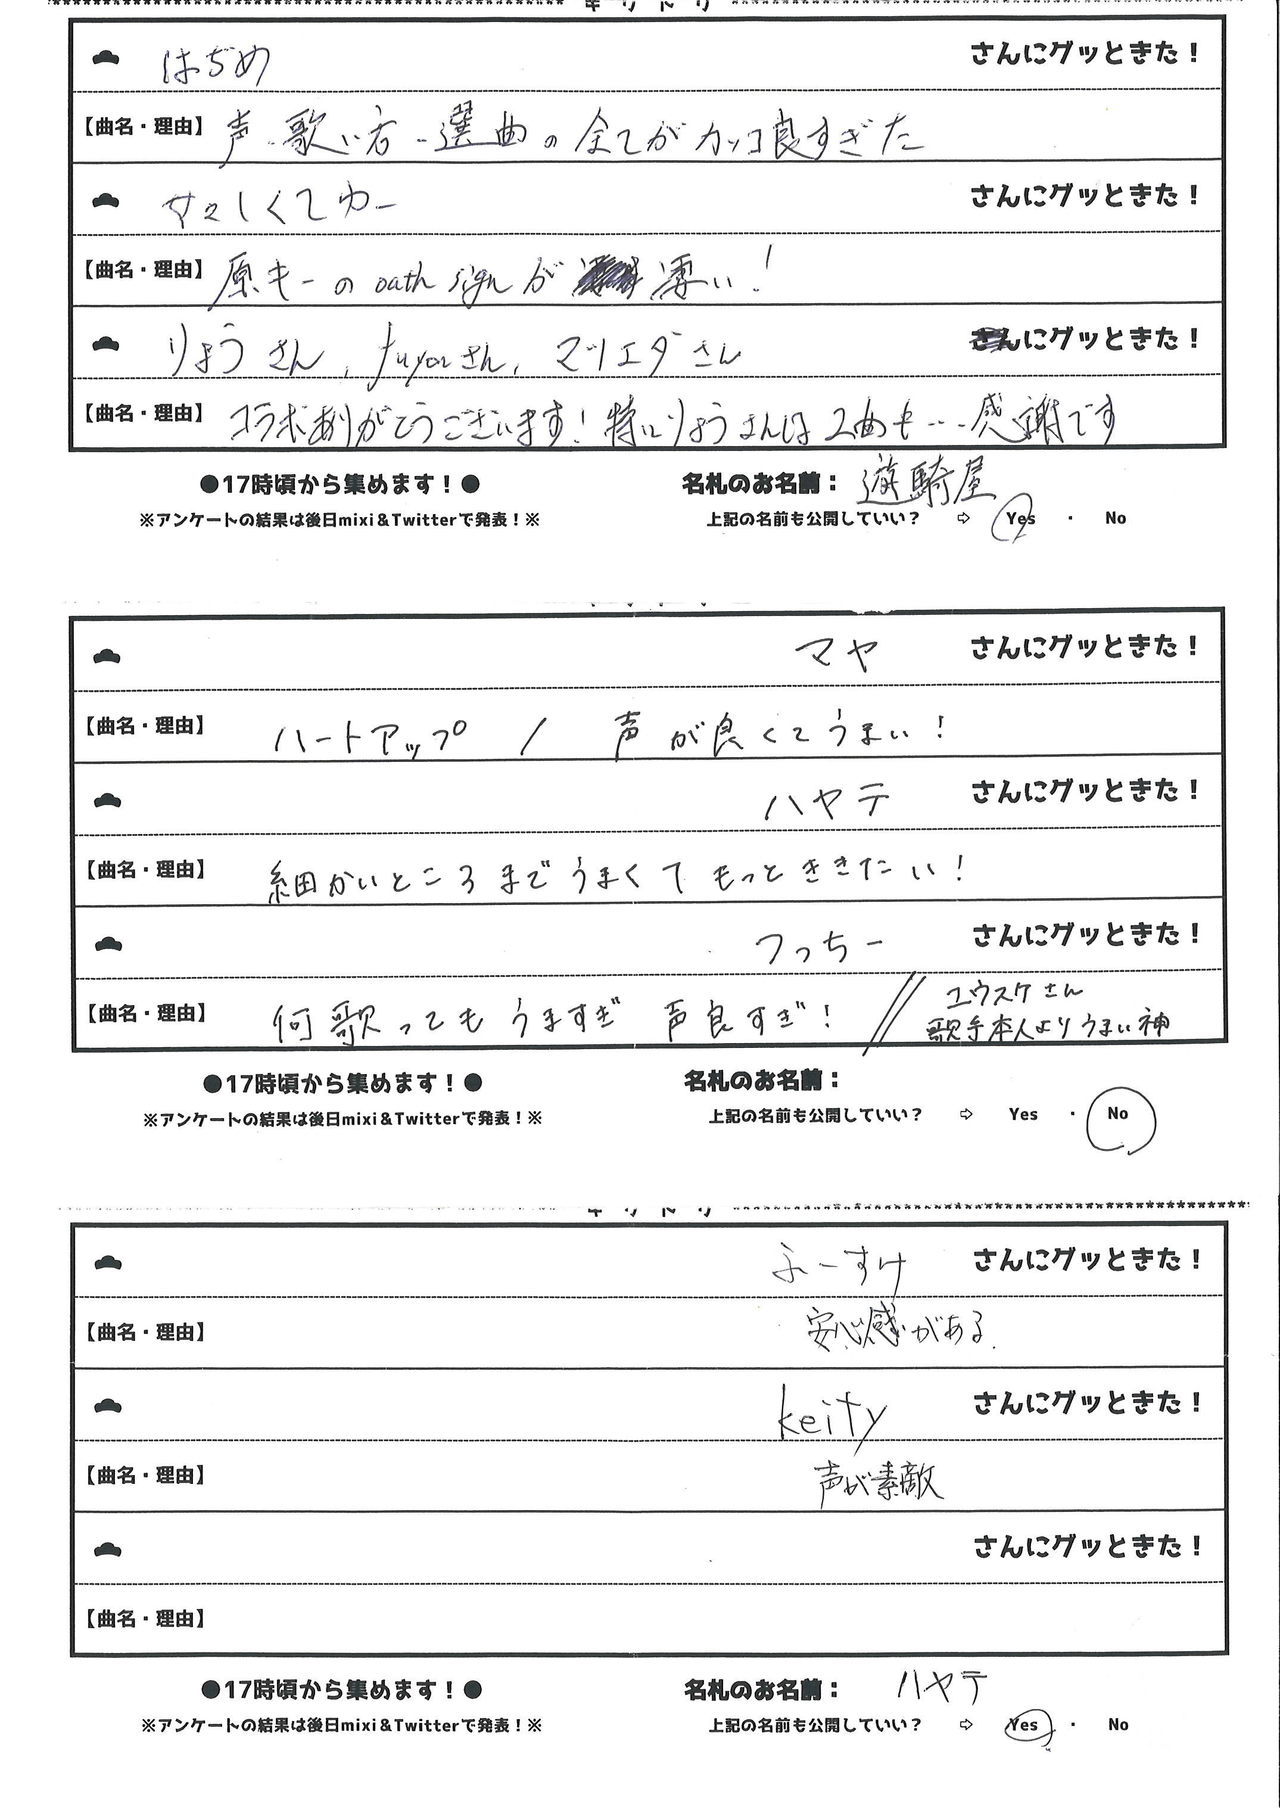 キリトリ
はぢめ さんにグッときた！
【曲名・理由】 声・歌い方・選曲の全てがカッコ良すぎた
女々しくてわー さんにグッときた！
【曲名・理由】 原キーの oath sign が 凄い！
りょうさん, fuyouさん, マツエダさん にグッときた！
【曲名・理由】 コラボありがとうございます！特にりょうさんは2曲も…感謝です
●17時頃から集めます！● 名札のお名前： 遊騎屋
※アンケートの結果は後日mixi＆Twitterで発表！※ 上記の名前も公開していい？ ⇨ Yes ・ No
マヤ さんにグッときた！
【曲名・理由】 ハートアップ / 声が良くてうまい！
ハヤテ さんにグッときた！
【曲名・理由】 細かいところまでうまくてもっとききたい！
つっちー さんにグッときた！
【曲名・理由】 何歌ってもうますぎ 声良すぎ！ // ユウスケさん
歌手本人よりうまい神
●17時頃から集めます！● 名札のお名前：
※アンケートの結果は後日mixi＆Twitterで発表！※ 上記の名前も公開していい？ ⇨ Yes ・ No
キリトリ
よーすけ さんにグッときた！
【曲名・理由】 安心感がある.
keity さんにグッときた！
【曲名・理由】 声が素敵
さんにグッときた！
【曲名・理由】
●17時頃から集めます！● 名札のお名前： ハヤテ
※アンケートの結果は後日mixi＆Twitterで発表！※ 上記の名前も公開していい？ ⇨ Yes ・ No